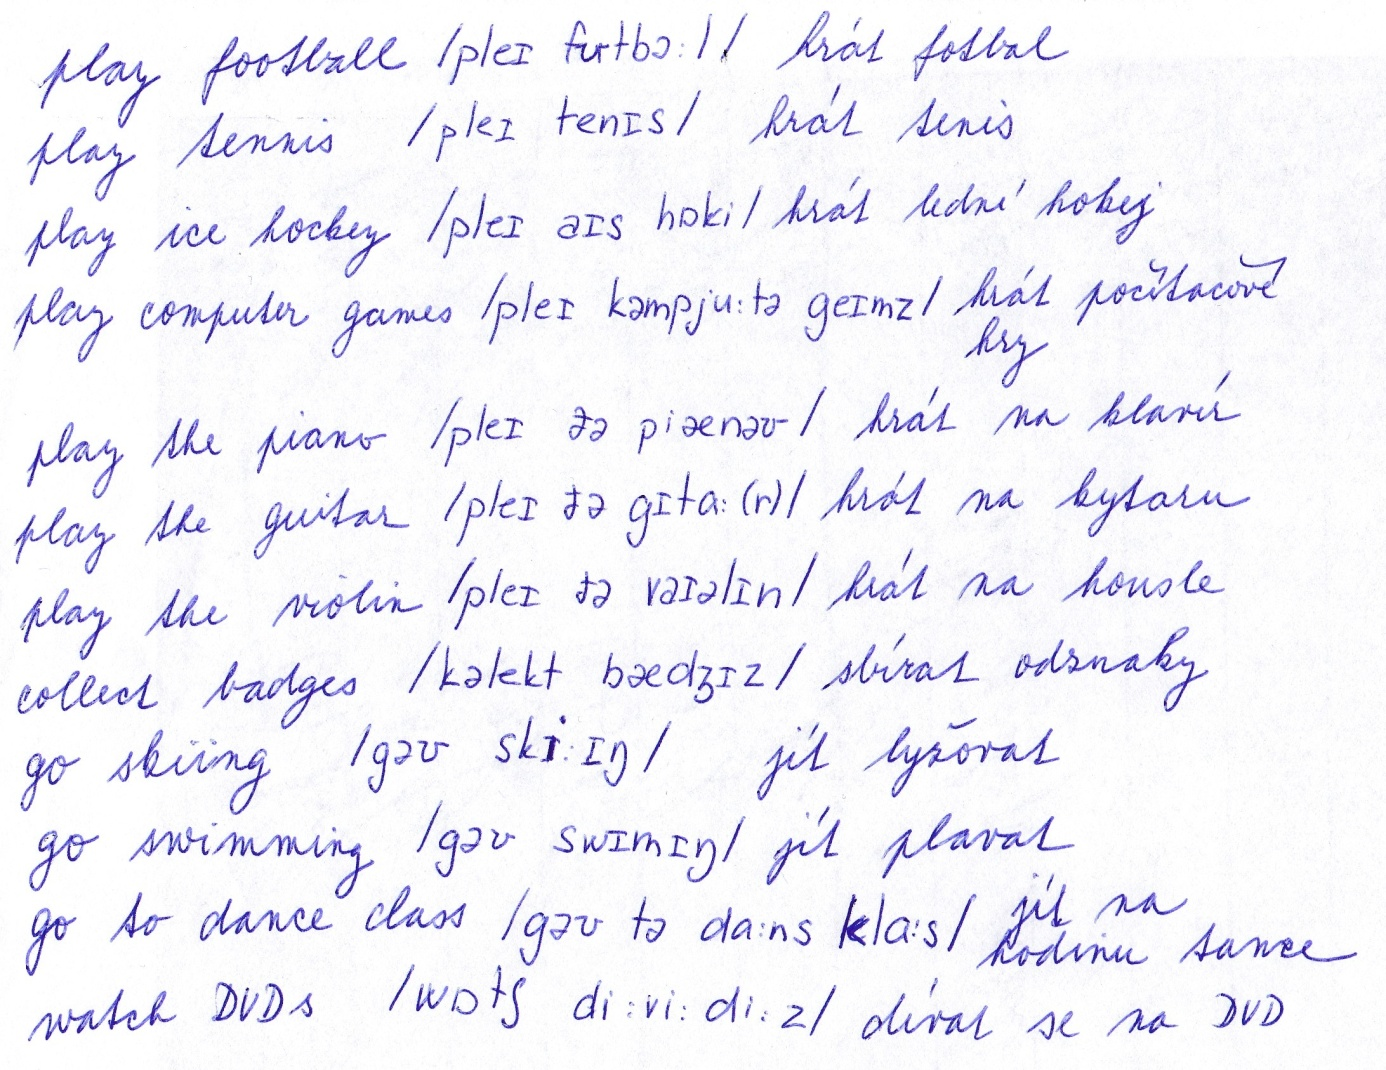 play football /pleɪ fʊtbɔ:l/ hrát fotbal
play tennis /pleɪ tenɪs/ hrát tenis
play ice hockey /pleɪ aɪs hɒki/ hrát lední hokej
play computer games /pleɪ kəmpju:tə geɪmz/ hrát počítačové
hry
play the piano /pleɪ ðə piænəʊ/ hrát na klavír
play the guitar /pleɪ ðə gɪta:(r)/ hrát na kytaru
play the violin /pleɪ ðə vaɪəlɪn/ hrát na housle
collect badges /kəlekt bædʒɪz/ sbírat odznaky
go skiing /gəʊ ski:ɪŋ/ jít lyžovat
go swimming /gəʊ swɪmɪŋ/ jít plavat
go to dance class /gəʊ tə da:ns kla:s/ jít na
hodinu tance
watch DVDs /wɒtʃ di:vi:di:z/ dívat se na DVD